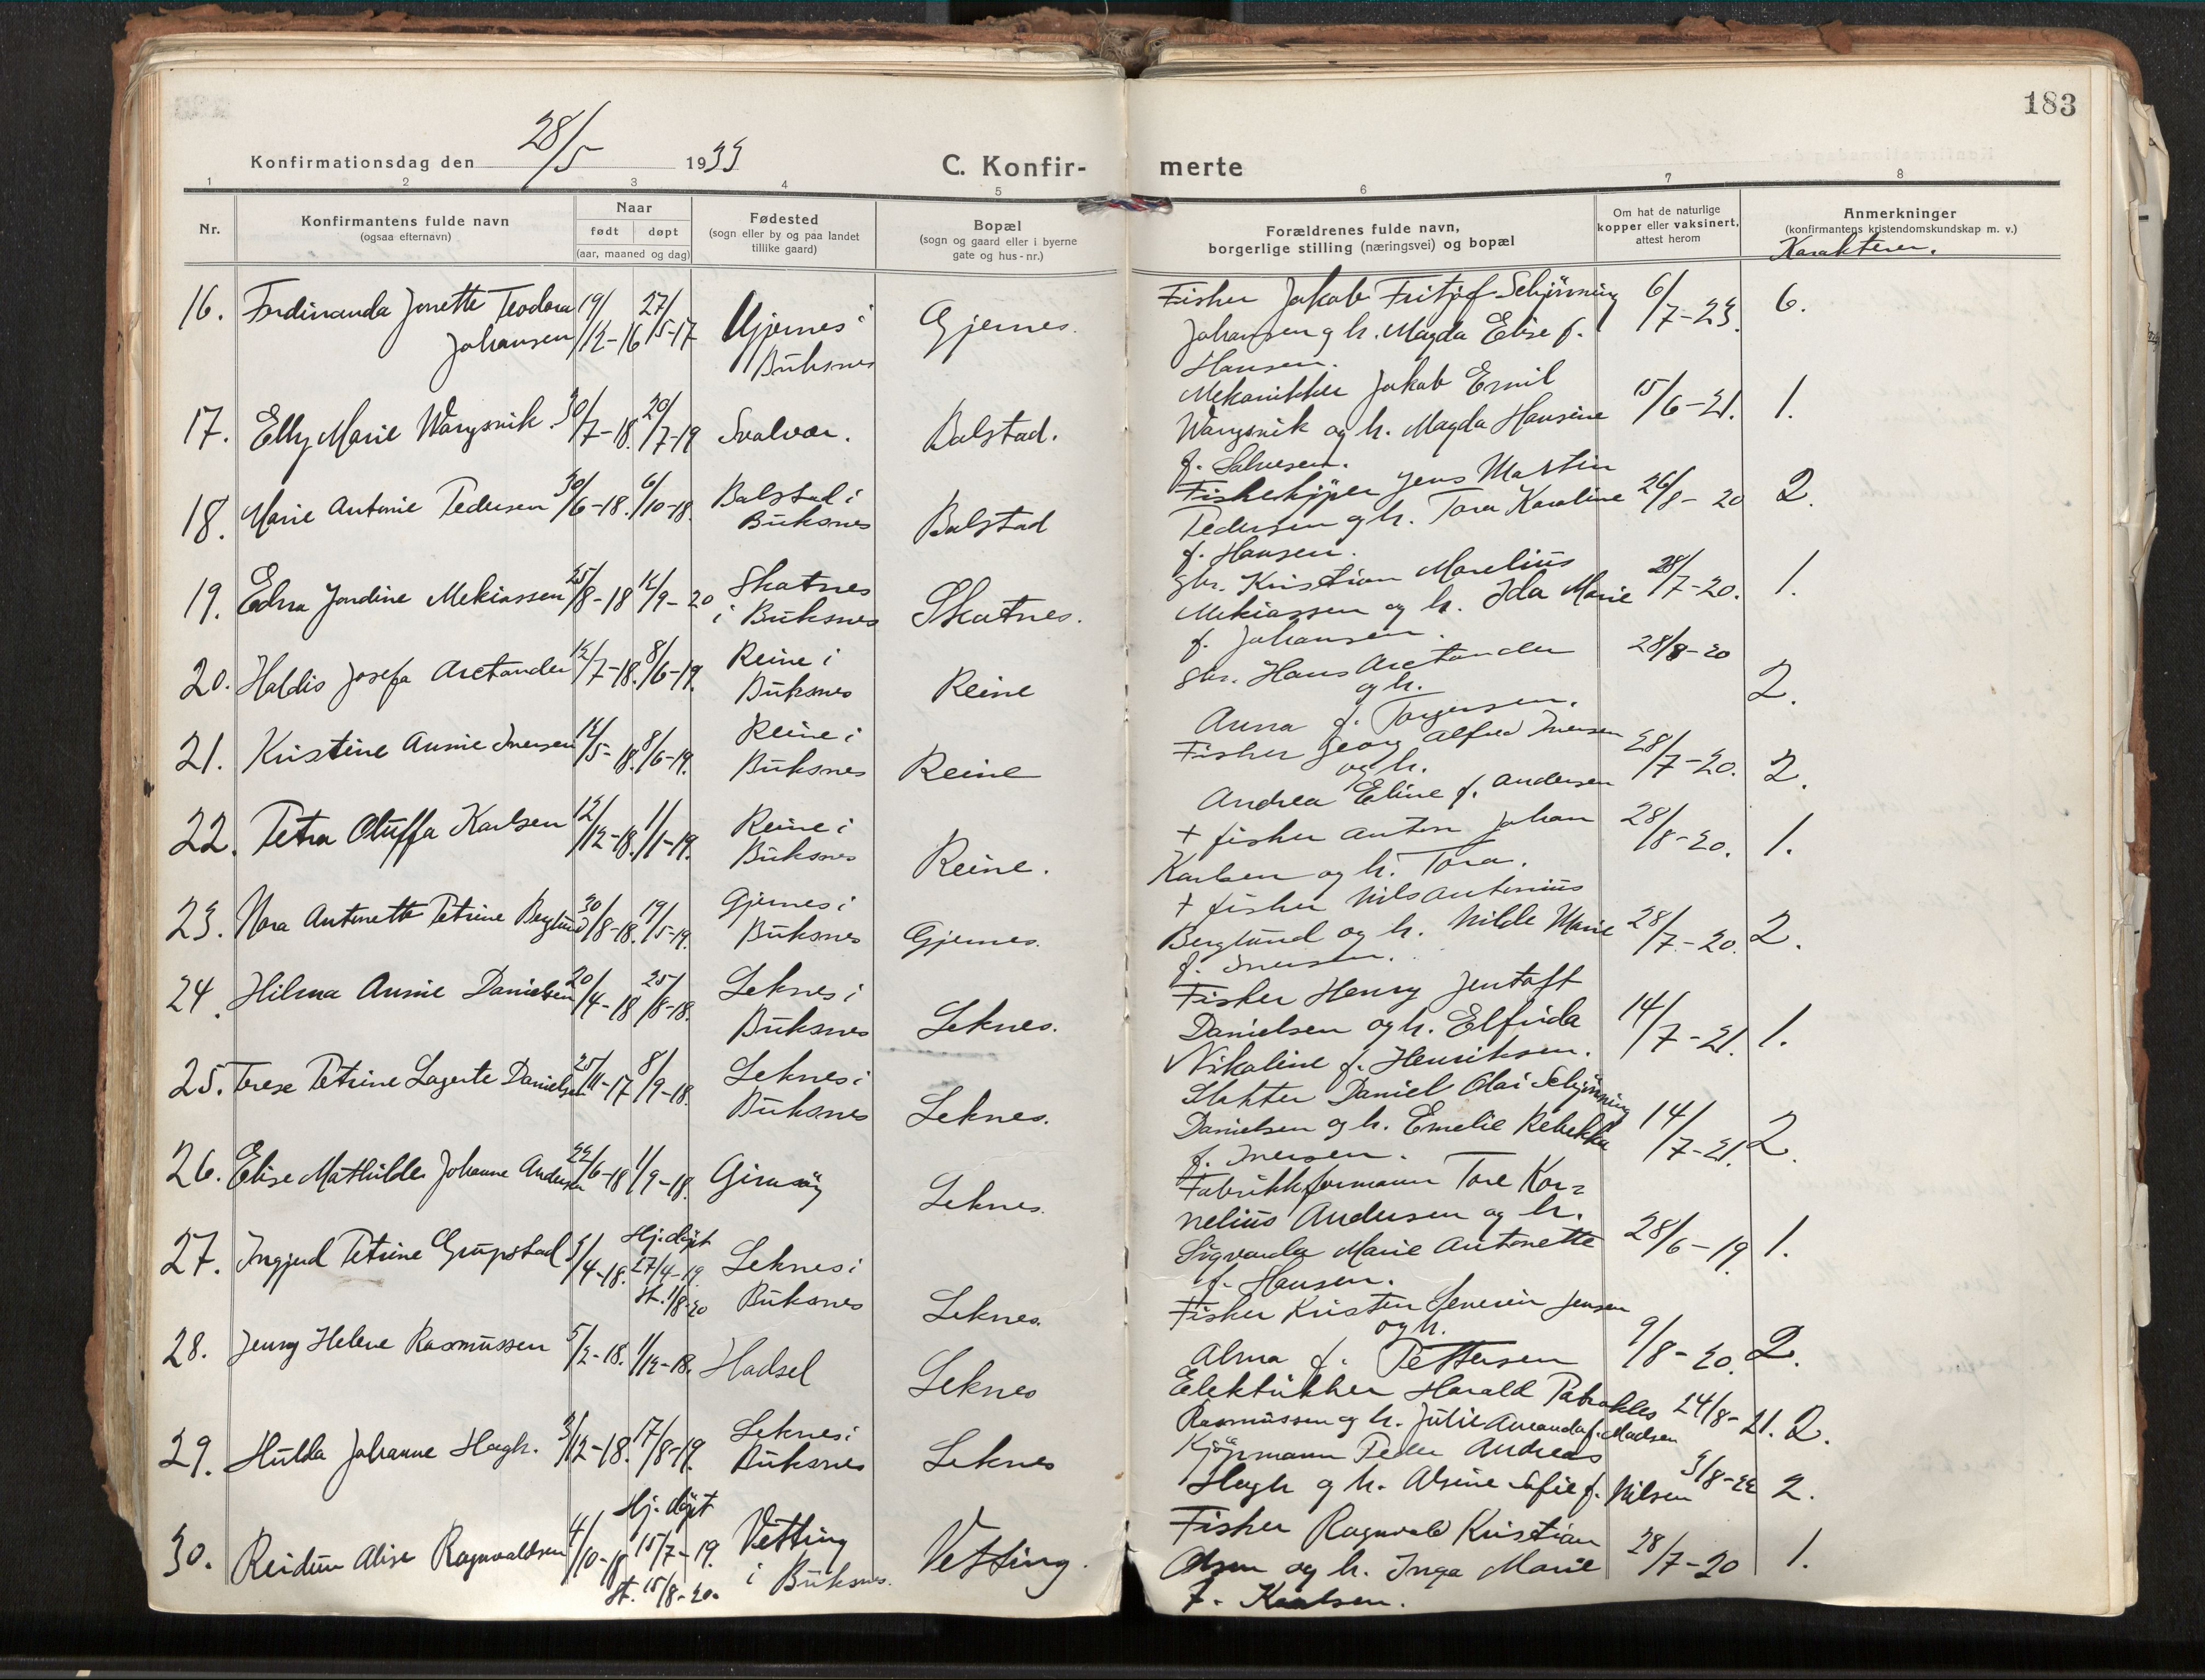 183
Konfirmationsdag den 28/5 1933
C. Konfir-
merte
1 2 3 4 5 6 7 8
Nr.
Konfirmantens fulde navn
(ogsaa efternavn)
Naar
født døpt
(aar, maaned og dag)
Fødested
(sogn eller by og paa landet
tillike gaard)
Bopæl
(sogn og gaard eller i byerne
gate og hus-nr.)
Forældrenes fulde navn,
borgerlige stilling (næringsvei) og bopæl
Om hat de naturlige
kopper eller vaksinert,
attest herom
Anmerkninger
(konfirmantens kristendomskundskap m. v.)
Karakteren.
16. Ferdinanda Jonette Teodora
Johansen
19/12-16 27/5-17
Gjernes i
Buksnes
Gjernes.
Fisker Jakob Fritjof Schjønning
Johansen og h. Magda Elise f.
Hansen.
6/7-23. 6.
17. Elly Marie Wangsvik. 30/7-18. 20/7-19 Svolvær. Balstad.
Mekanikker Jakob Emil
Wangsvik og h. Magda Hansine
f. Salvesen.
15/6-21. 1.
18. Marie Antonie Pedersen 30/6-18. 6/10-18.
Balstad i
Buksnes
Balstad
Fiskekjøper Jens Martin
Pedersen og h. Tora Karoline
f. Hansen.
26/8-20 2.
19. Edna Jordine Mekiassen 25/8-18 12/9-20
Skotnes
i Buksnes
Skotnes.
gbr. Kristian Marelius
Mekiassen og h. Ida Marie
f. Johansen.
28/7-20. 1.
20. Haldis Josefa Arctander 12/7-18. 8/6-19.
Reine i
Buksnes
Reine
gbr. Hans Arctander
og h.
Anna f. Torgersen.
28/8-20 2.
21. Kristine Annie Iversen 12/5-18. 8/6-19.
Reine i
Buksnes
Reine
Fisker Georg Alfred Iversen
og h.
Andrea Eline f. Andersen
28/7-20. 2.
22. Petra Oluffa Karlsen 12/12-18. 1/1-19.
Reine i
Buksnes
Reine.
+ fisker Anton Johan
Karlsen og h. Tora.
28/8-20. 1.
23. Nora Antonette Petrine Berglund 30/8-18. 19/5-19.
Gjernes i
Buksnes
Gjernes.
+ fisker Nils Antonius
Berglund og h. Hilde Marie
f. Iversen.
28/7-20. 2.
24. Hilma Annie Danielsen 20/4-18 25/8-18.
Leknes i
Buksnes
Leknes.
Fisker Henry Jentoft
Danielsen og h. Elfrida
Nikoline f. Henriksen.
14/7-21. 1.
25. Terese Petrine Lagerte Danielsen 25/11-17 8/9-18.
Leknes i
Buksnes
Leknes.
Slakter Daniel Olai Schjønning
Danielsen og h. Emelie Rebekka
f. Iversen.
14/7-21. 2.
26. Elise Mathilde Johanne Andersen 22/6-18 1/9-18. Gimsøy Leknes.
Fabrikkformann Tore Kor=
nelius Andersen og h.
Sigvarda Marie Antonette
f. Hansen.
28/6-19. 1.
27. Ingjerd Petrine Grupstad 3/4-18.
Hj.døpt
27/4-19.
st. 1/8-20
Leknes i
Buksnes
Leknes.
Fisker Kristen Severin Jensen
og h.
Alma f. Pettersen
9/8-20. 2.
28. Jenny Helene Rasmussen 5/2-18. 1/12-18. Hadsel Leknes
Elektrikker Harald Patrokles
Rasmussen og h. Julie Amanda f. Madsen
24/8-21. 2.
29. Hulda Johanne Hagh. 3/12-18. 17/8-19.
Leknes i
Buksnes
Leknes
Kjøpmann Peder Andreas
Hagh og h. Alsine Sofie f. Nilsen
3/8-22 2.
30. Reidun Alise Ragnvaldsen 4/10-18
Hj. døpt
15/7-19.
st. 15/8-20.
Vetting
i Buksnes.
Vetting.
Fisker Ragnvald Kristian
Olsen og h. Inga Marie
f. Karlsen.
28/7-20 1.